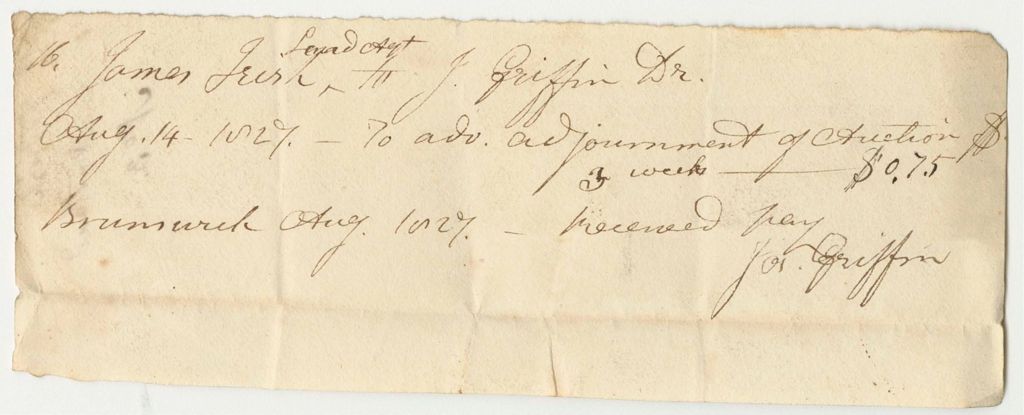 16.
Land Agt
James Irish, To J. Griffin Dr.
Aug. 14 - 1827. – To adv. adjournment of Auction
3 weeks —— $0.75
Brunswick Aug. 1827. – Received pay
Jos. Griffin